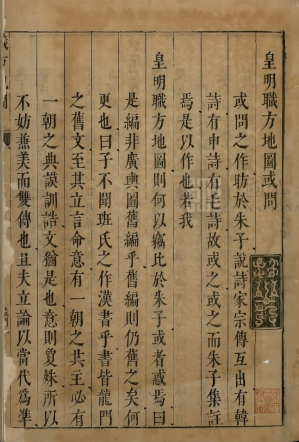 皇明職方地圖或問
或問之作昉於朱子說詩家宗傳互出有韓
詩有申詩有毛詩故或之或之而朱子集註
焉是以作也若我
皇明職方地圖則何以竊比於朱子或者惑焉曰
是編非廣輿圖舊編乎舊編則仍舊之矣何
更也曰子不聞班氏之作漢書乎書皆龍門
之舊文至其立言命意有一朝之共主必有
一朝之典謨訓誥文猶是也意則敻殊所以
不妨兼美而雙傳也且夫立論以當代為準